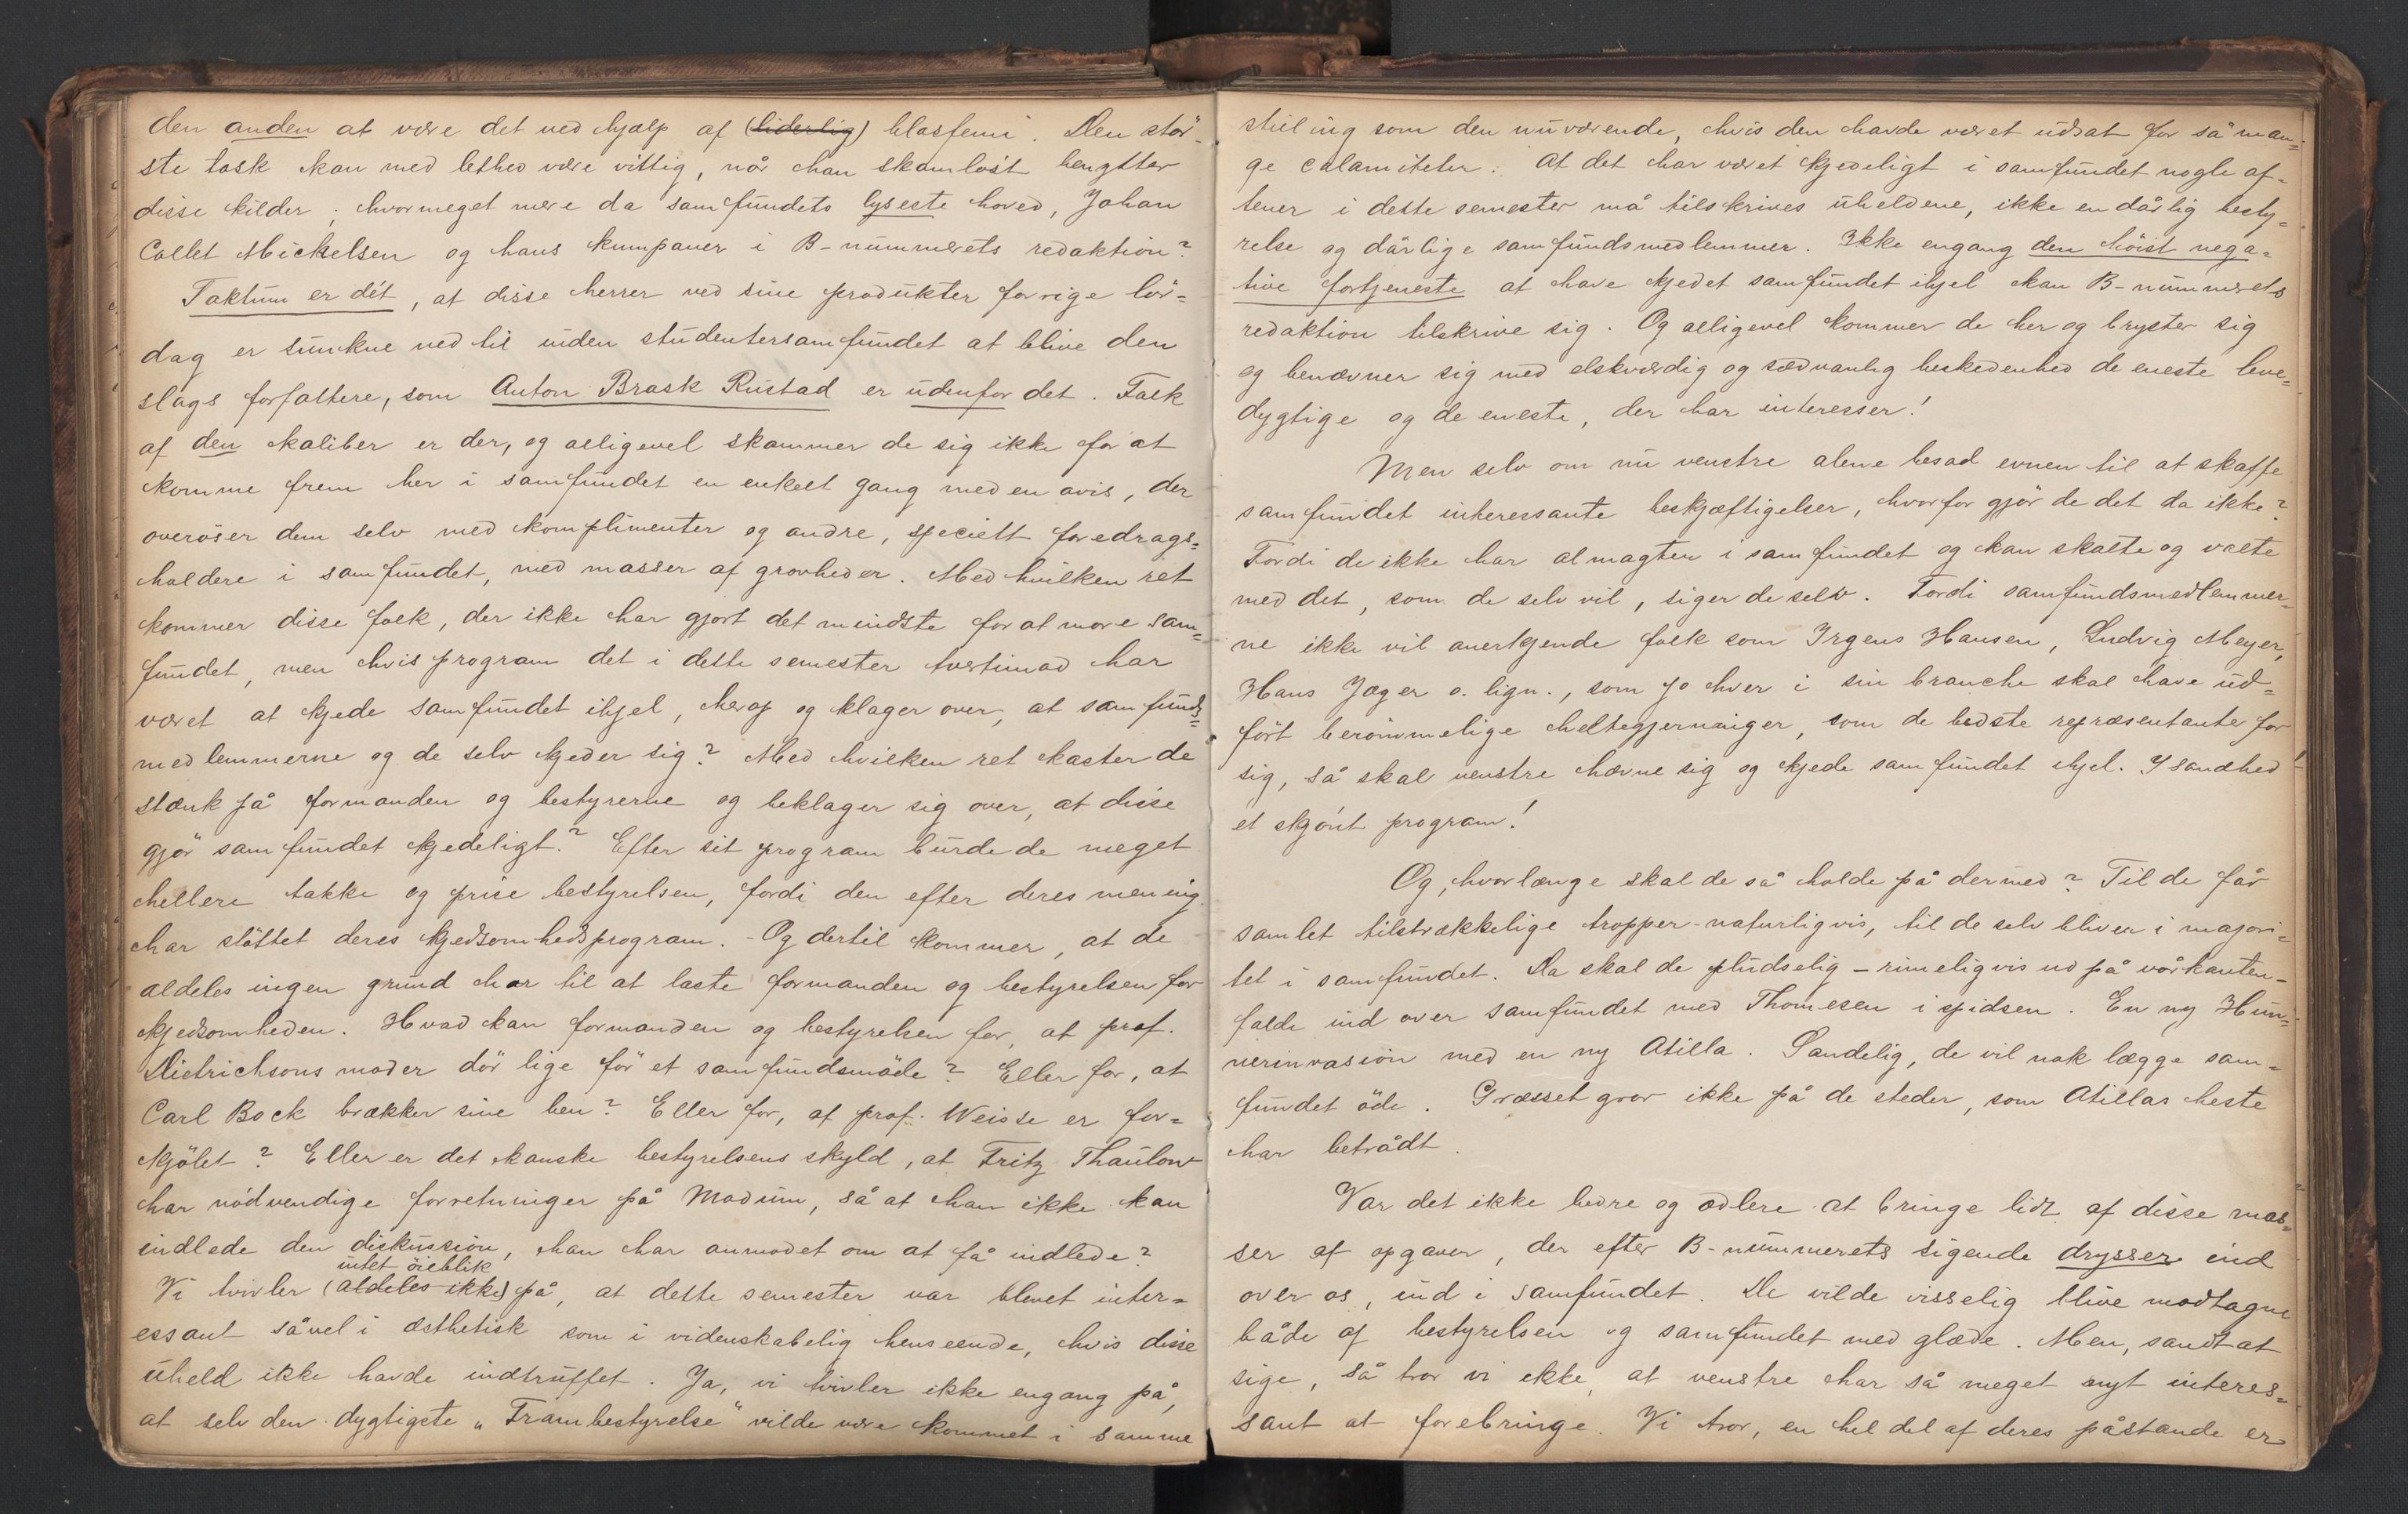 den anden at være det ved hjælp af (liderlig) blasfemi. Den stør-
ste task kan med lethed være vittig, når han skamløst benytter
disse kilder; hvormeget mere da samfundets lyseste hoved, Johan
Collet Mickelsen og hans kumpaner i B-nummerets redaktion?
Faktum er dét, at disse herrer ved sine produkter forrige lør=
dag er sunkne ned til inden studentersamfundet at blive den
slags forfattere, som Anton Brask Rustad er udenfor det. Folk
af den kaliber er der, og alligevel skammer de sig ikke for at
komme frem her i samfundet en enkelt gang med en avis, der
overøser dem selv med komplimenter og andre, specielt foredrags=
holdere i samfundet, med masser af grovheder. Med hvilken ret
kommer disse folk, der ikke har gjort det mindste for at more sam=
fundet, men hvis program det i dette semester tvertimod har
været at kjede samfundet ihjel, herop og klager over, at samfunds=
medlemmerne og de selv kjeder sig? Med hvilken ret kaster de
stænk på formanden og bestyrerne og beklager sig over, at disse
gjør samfundet kjedeligt? Efter sit program burde de meget
hellere takke og prise bestyrelsen, fordi den efter deres mening
har støttet deres kjedsomhedsprogram. - Og dertil kommer, at de
aldeles ingen grund har til at laste formanden og bestyrelsen for
kjedsomheden. Hvad kan formanden og bestyrelsen for, at prof.
Dietrichsons moder dør lige før et samfundsmøde? Eller for, at
Carl Bock brækker sine ben? Eller for, at prof. Weisse er for=
kjølet? Eller er det kanske bestyrelsens skyld, at Fritz Thaulow
har nødvendige forretninger på Modum, så at han ikke kan
indlede den diskussion, han har anmodet om at få indlede?
intet øieblik
Vi tvivler (aldeles ikke) på, at dette semester var blevet inter=
essant såvel i æsthetisk som i videnskabelig henseende, hvis disse
uheld ikke havde indtruffet. Ja, vi tvivler ikke engang på,
at selv den dygtigste „Frambestyrelse“ vilde være kommet i samme
stilling som den nuværende, hvis den havde været udsat for så man=
ge calamiteter. At det har været kjedeligt i samfundet nogle af-
tener i dette semester må tilskrives uheldene, ikke en dårlig besty=
relse og dårlige samfundsmedlemmer. Ikke engang den høist nega=
tive fortjeneste at have kjedet samfundet ihjel kan B-nummerets
redaktion tilskrive sig. Og alligevel kommer de her og bryster sig
og benævner sig med elskværdig og sædvanlig beskedenhed de eneste leve=
dygtige og de eneste, der har interesser!
Men selv om nu venstre alene besad evnen til at skaffe
samfundet interessante beskjæftigelser, hvorfor gjør de det da ikke?
Fordi de ikke har almagten i samfundet og kan skalte og valte
med det, som de selv vil, siger de selv. Fordi samfundsmedlemmer-
ne ikke vil anerkjende folk som Irgens Hansen, Ludvig Meyer,
Hans Jæger o. lign., som jo hver i sin branche skal have ud=
ført berømmelige heltegjerninger, som de bedste repræsentanter for
sig, så skal venstre hævne sig og kjede samfundet ihjel. I sandhed
et skjønt program!
Og, hvorlænge skal de så holde på dermed? Til de får
samlet tilstrækkelige tropper-naturligvis, til de selv bliver i majori=
tet i samfundet. Da skal de pludselig - rimeligvis ud på vårkanten -
falde ind over samfundet med Thomesen i spidsen. En ny Hun=
nerinvasion med en ny Atilla. Sandelig, de vil nok lægge sam=
fundet øde. Græsset gror ikke på de steder, som Atillas heste
har betrådt.
Var det ikke bedre og ædlere at bringe lidt af disse mas=
ser af opgaver, der efter B-nummerets sigende drysser ind
over os, ind i samfundet. De vilde visselig blive modtagne
både af bestyrelsen og samfundet med glæde. Men, sandt at
sige, så tror vi ikke, at venstre har så meget nyt interes=
sant at forebringe. Vi tror, en hel del af deres påstande er